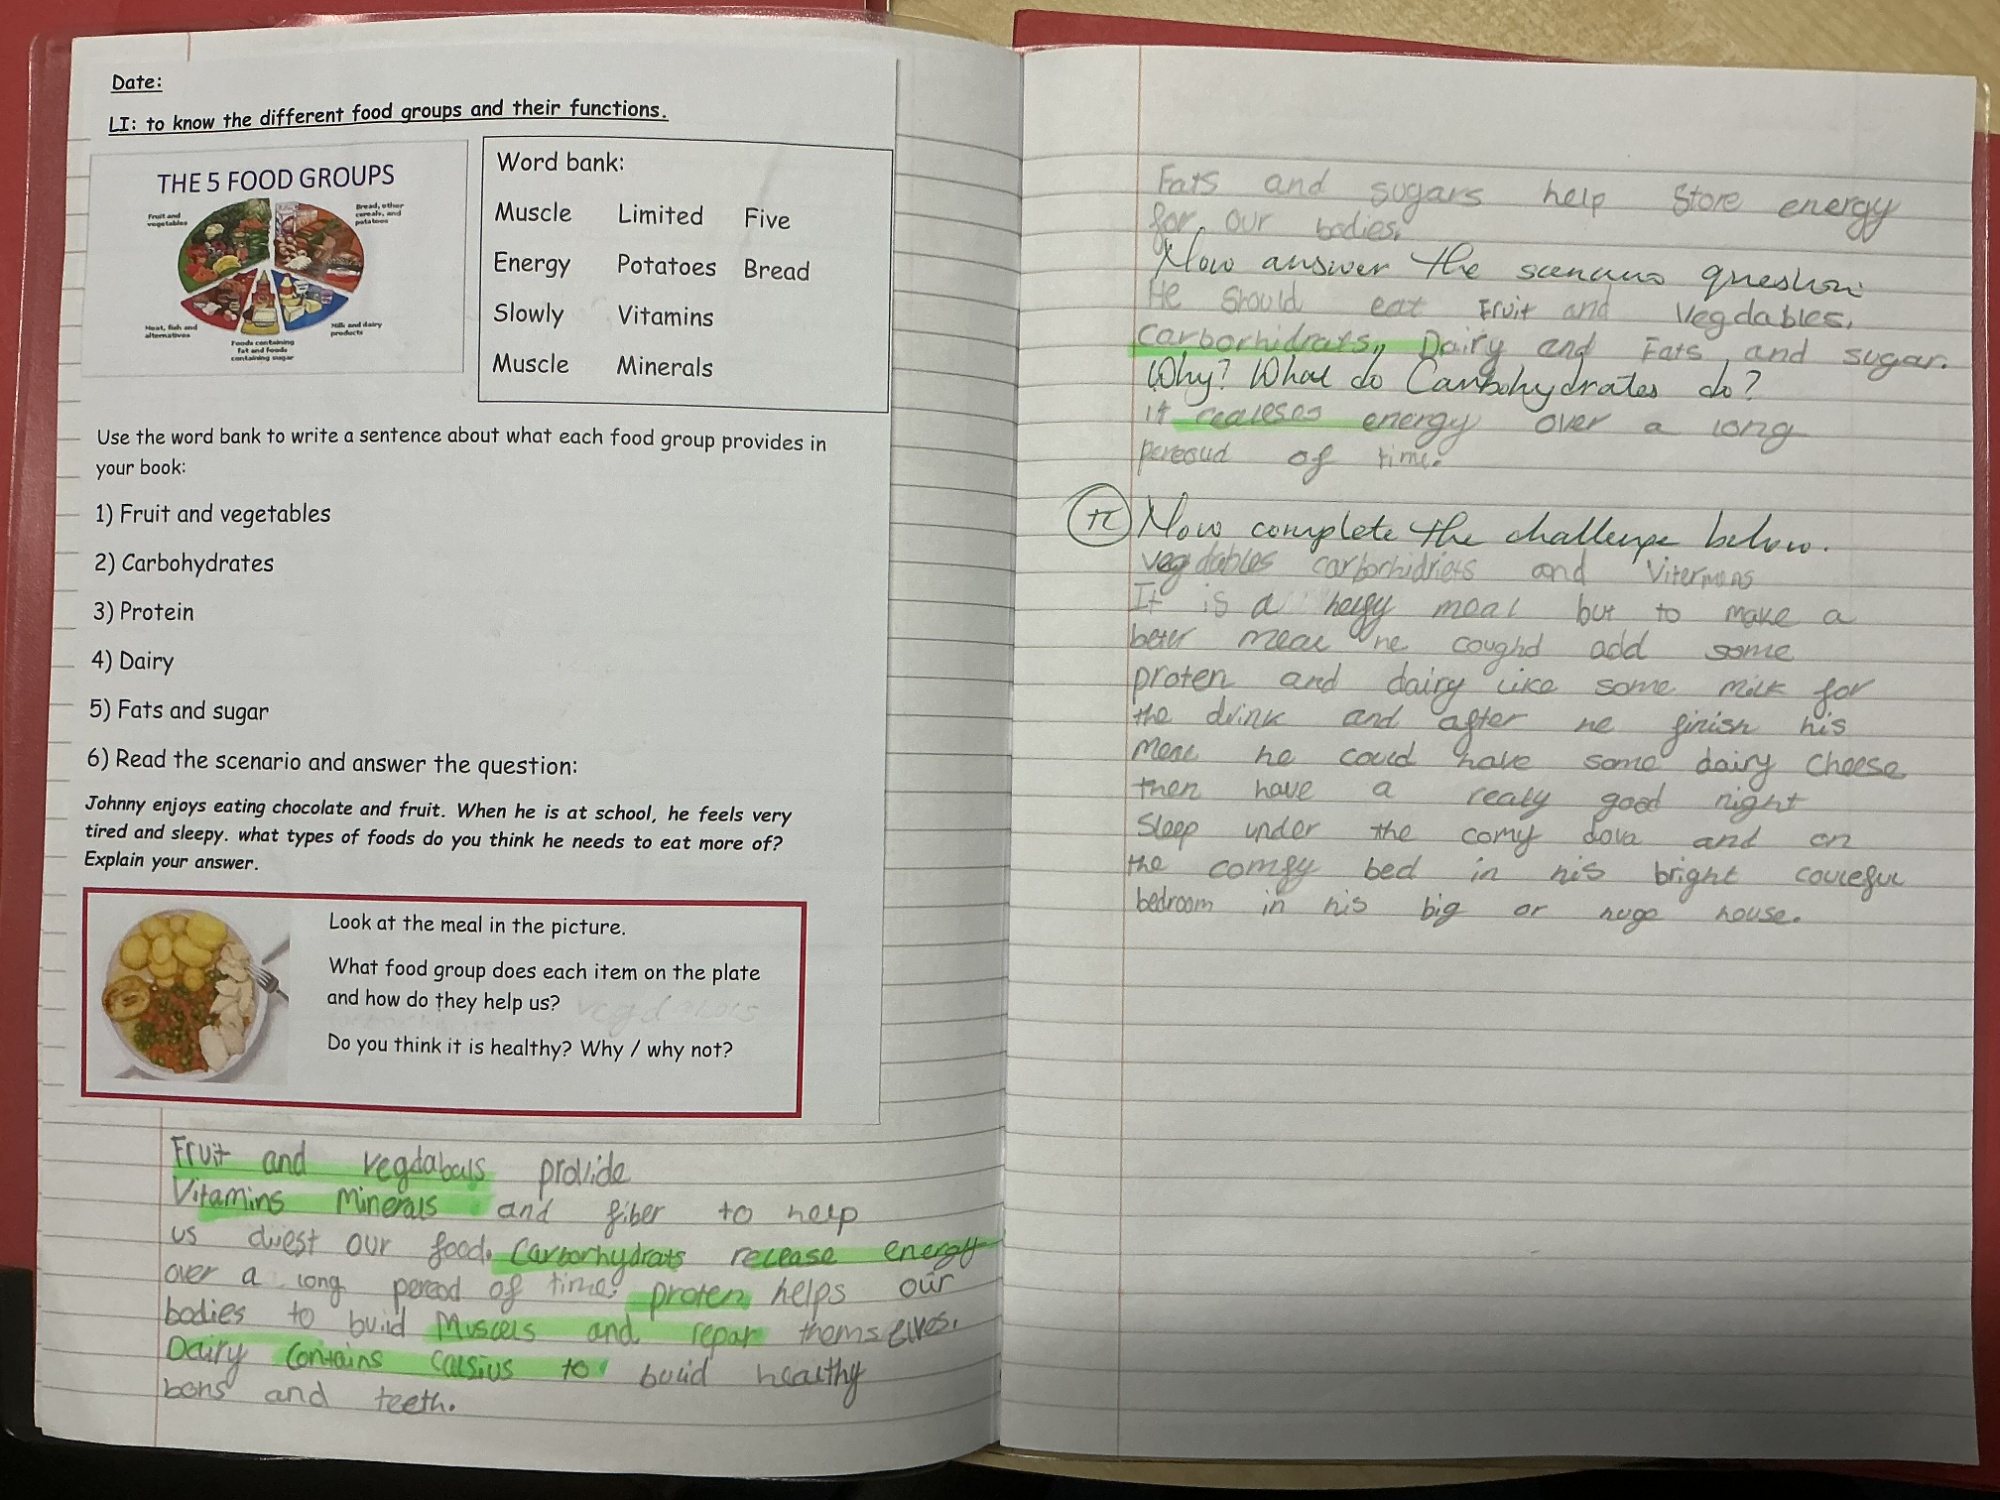 Date:
LI: to know the different food groups and their functions.
THE 5 FOOD GROUPS
Fruit and
vegetables
Bread, other
cereals, and
potatoes
Meat, fish and
alternatives
Foods containing
fat and foods
containing sugar
Milk and dairy
products
Word bank:
Muscle Limited Five
Energy Potatoes Bread
Slowly Vitamins
Muscle Minerals
Use the word bank to write a sentence about what each food group provides in
your book:
1) Fruit and vegetables
2) Carbohydrates
3) Protein
4) Dairy
5) Fats and sugar
6) Read the scenario and answer the question:
Johnny enjoys eating chocolate and fruit. When he is at school, he feels very
tired and sleepy. what types of foods do you think he needs to eat more of?
Explain your answer.
Look at the meal in the picture.
What food group does each item on the plate
and how do they help us?
Do you think it is healthy? Why / why not?
Fruit and vegdabuls provide
Vitamins Minerals and fiber to help
us diest our food. Carborhydrats recease energy
over a long peread of time. proten helps our
bodies to build Muscels and repar themselves.
Dairy contains calsius to build healthy
bons and teeth.
Fats and sugars help store energy
for our bodies.
Now answer the scenario question
He should eat Fruit and Vegdables,
carborhidrats, Dairy and Fats and sugar.
Why? What do Carbohydrates do?
it realeses energy over a long
pereoud of time.
Now complete the challenge below.
vegdables carborhidriets and
It is a meal but to make a
beter meal he coughd add some
proten and dairy like some milk for
the drink and after he finish his
meal he could have some dairy cheese
then have a realy good night
sleep under the comy dova and on
the comfy bed in his bright couleful
bedroom in his big or huge house.